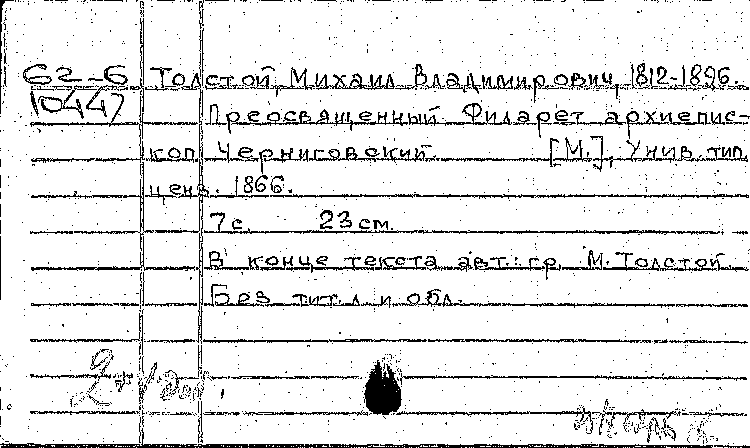 62-6 Толстой, Михаил Владимирович, 1812-1896.
10447 Преосвященный Филарет архиепис-
коп Черниговский. [М.], Унив. тип.
ценз. 1866.
7 с. 23 см.
В конце текста авт.: гр. М. Толстой.
Без тит. л. и обл.